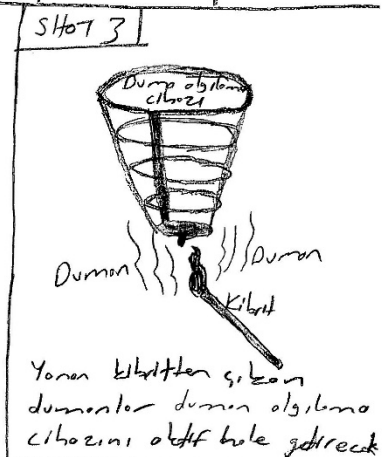 SHOT 3
Dump algılama
cihazı
Duman
Duman
Kibrit
Yanan kibritten çıkan
dumanlar duman algılama
cihazını aktif hale getirecek